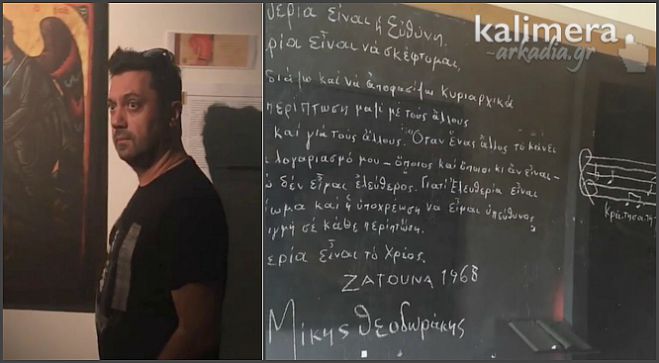 kalimera
-arkadia.gr
θερία εἶναι ἡ Εὐθύνη.
ρία εἶναι νὰ σκέφτομαι,
διάζω καὶ νὰ ἀποφασίζω κυριαρχικὰ
περίπτωση μαζὶ μὲ τοὺς ἄλλους
καὶ γιὰ τοὺς ἄλλους. Ὅταν ἕνας ἄλλος τὸ κάνει
λογαριασμό μου – ὅποιος καὶ ὅποιοι κι ἂν εἶναι –
δὲν εἶμαι ἐλεύθερος. Γιατί Ἐλευθερία εἶναι
ίωμα καὶ ἡ ὑποχρέωση νὰ εἶμαι ὑπεύθυνος
ιγμὴ σὲ κάθε περίπτωση.
ερία εἶναι τὸ Χρέος.
ΖΑΤΟΥΝΑ 1968
Μίκης Θεοδωράκης